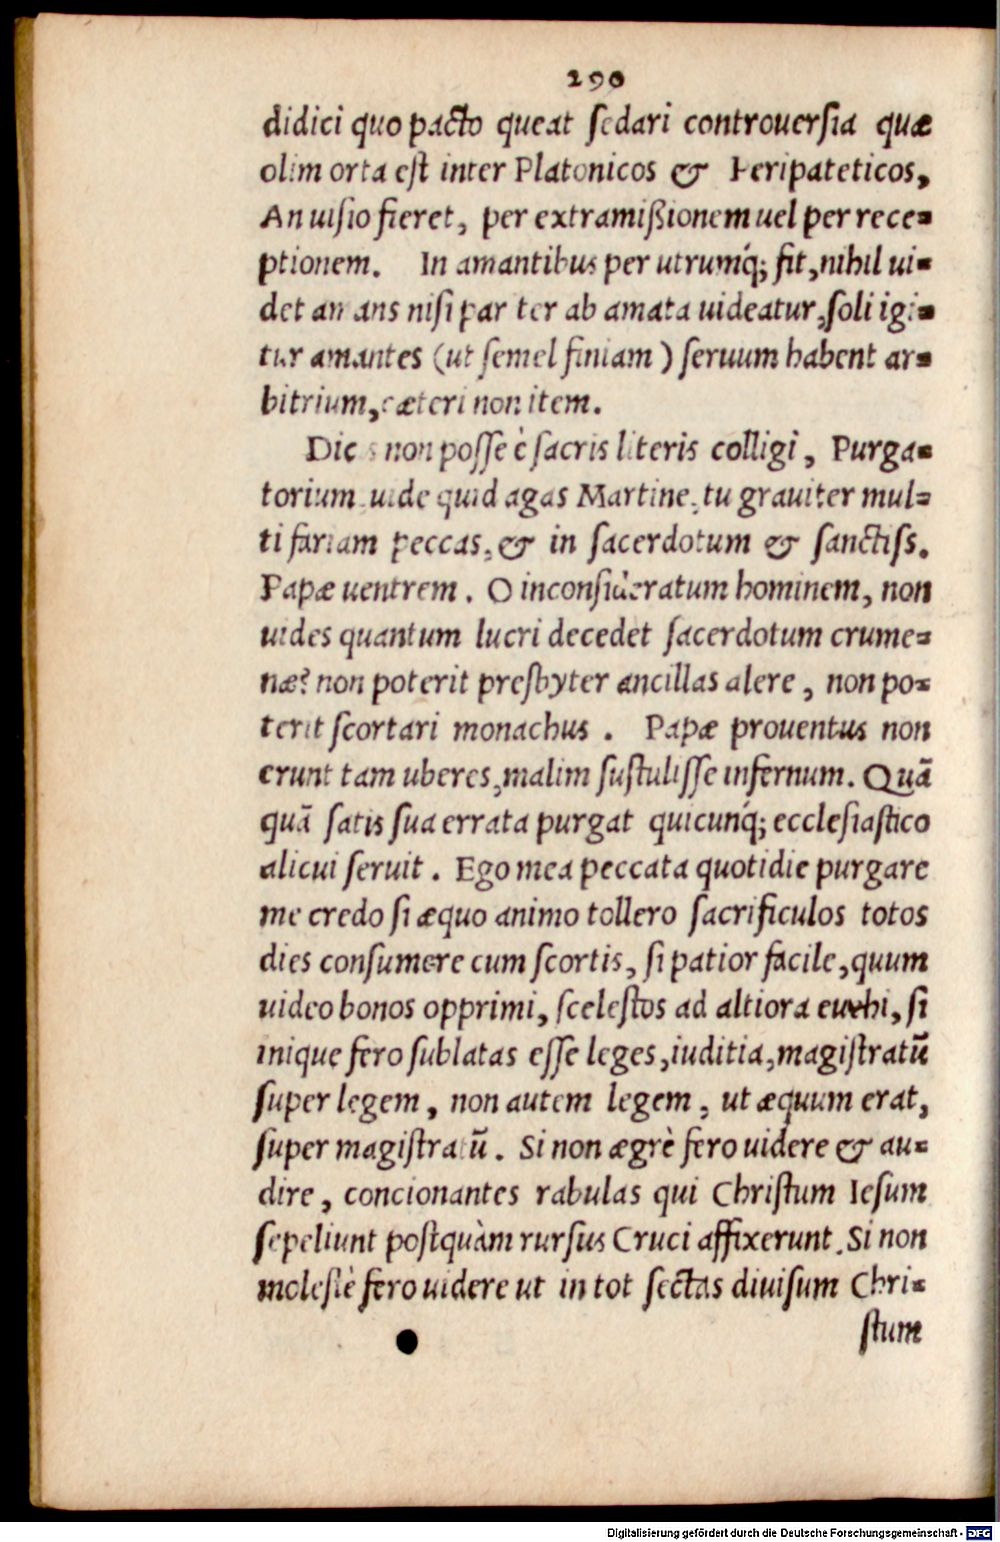 290
didici quo pacto queat sedari controuersia quæ
olim orta est inter Platonicos & Peripateticos,
An uisio fieret, per extramißionem uel per rece=
ptionem. In amantibus per utrumq́; fit, nihil ui=
det amans nisi pariter ab amata uideatur, soli igi=
tur amantes (ut semel finiam) seruum habent ar=
bitrium, cæteri non item.
Dicis non posse è sacris literis colligi, Purga=
torium uide quid agas Martine, tu grauiter mul=
ti fariam peccas, & in sacerdotum & sanctiss.
Papæ uentrem. O inconsideratum hominem, non
uides quantum lucri decedet sacerdotum crume=
næ? non poterit presbyter ancillas alere, non po=
terit scortari monachus. Papæ prouentus non
erunt tam uberes, malim sustulisse infernum. Quã
quã satis sua errata purgat quicunq́; ecclesiastico
alicui seruit. Ego mea peccata quotidie purgare
me credo si æquo animo tollero sacrificulos totos
dies consumere cum scortis, si patior facile, quum
uideo bonos opprimi, scelestos ad altiora euehi, si
inique fero sublatas esse leges, iuditia, magistratũ
super legem, non autem legem, ut æquum erat,
super magistratũ. Si non ægrè fero uidere & au=
dire, concionantes rabulas qui Christum Iesum
sepeliunt postquàm rursus Cruci affixerunt. Si non
molestè fero uidere ut in tot sectas diuisum Chri=
stum
Digitalisierung gefördert durch die Deutsche Forschungsgemeinschaft - DFG